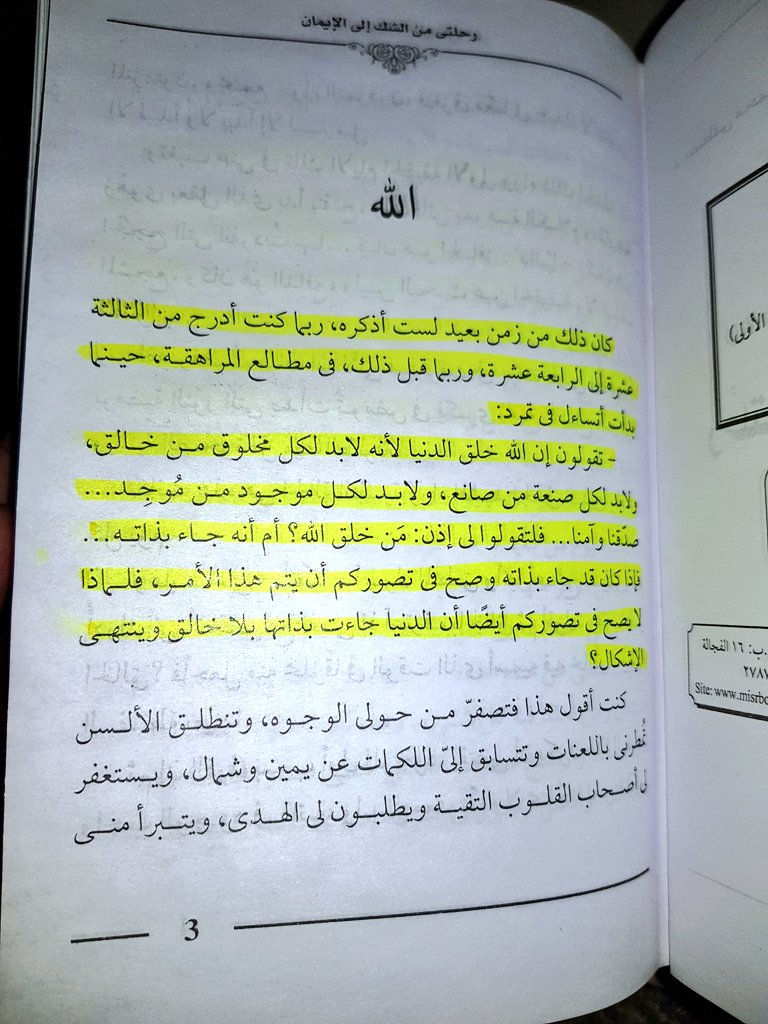 رحلتى من الشك إلى الإيمان
الله
كان ذلك من زمن بعيد لست أذكره، ربما كنت أدرج من الثالثة
عشرة إلى الرابعة عشرة، وربما قبل ذلك، فى مطالع المراهقة، حينما
بدأت أتساءل فى تمرد:
- تقولون إن الله خلق الدنيا لأنه لابد لكل مخلوق من خالق،
ولابد لكل صنعة من صانع، ولابد لكل موجود من مُوجِد...
صدّقنا وآمنا... فلتقولوا لى إذن: مَن خلق الله؟ أم أنه جاء بذاته...
فإذا كان قد جاء بذاته وصح فى تصوركم أن يتم هذا الأمر، فلماذا
لا يصح فى تصوركم أيضًا أن الدنيا جاءت بذاتها بلا خالق وينتهى
الإشكال؟
كنت أقول هذا فتصفرّ من حولى الوجوه، وتنطلق الألسن
تُمطرنى باللعنات وتتسابق إلىّ اللكمات عن يمين وشمال، ويستغفر
لى أصحاب القلوب التقية ويطلبون لى الهدى، ويتبرأ منى
3
الأولى)
ب: ١٦ الفجالة
٢٧٨٧
Site: www.misrbo